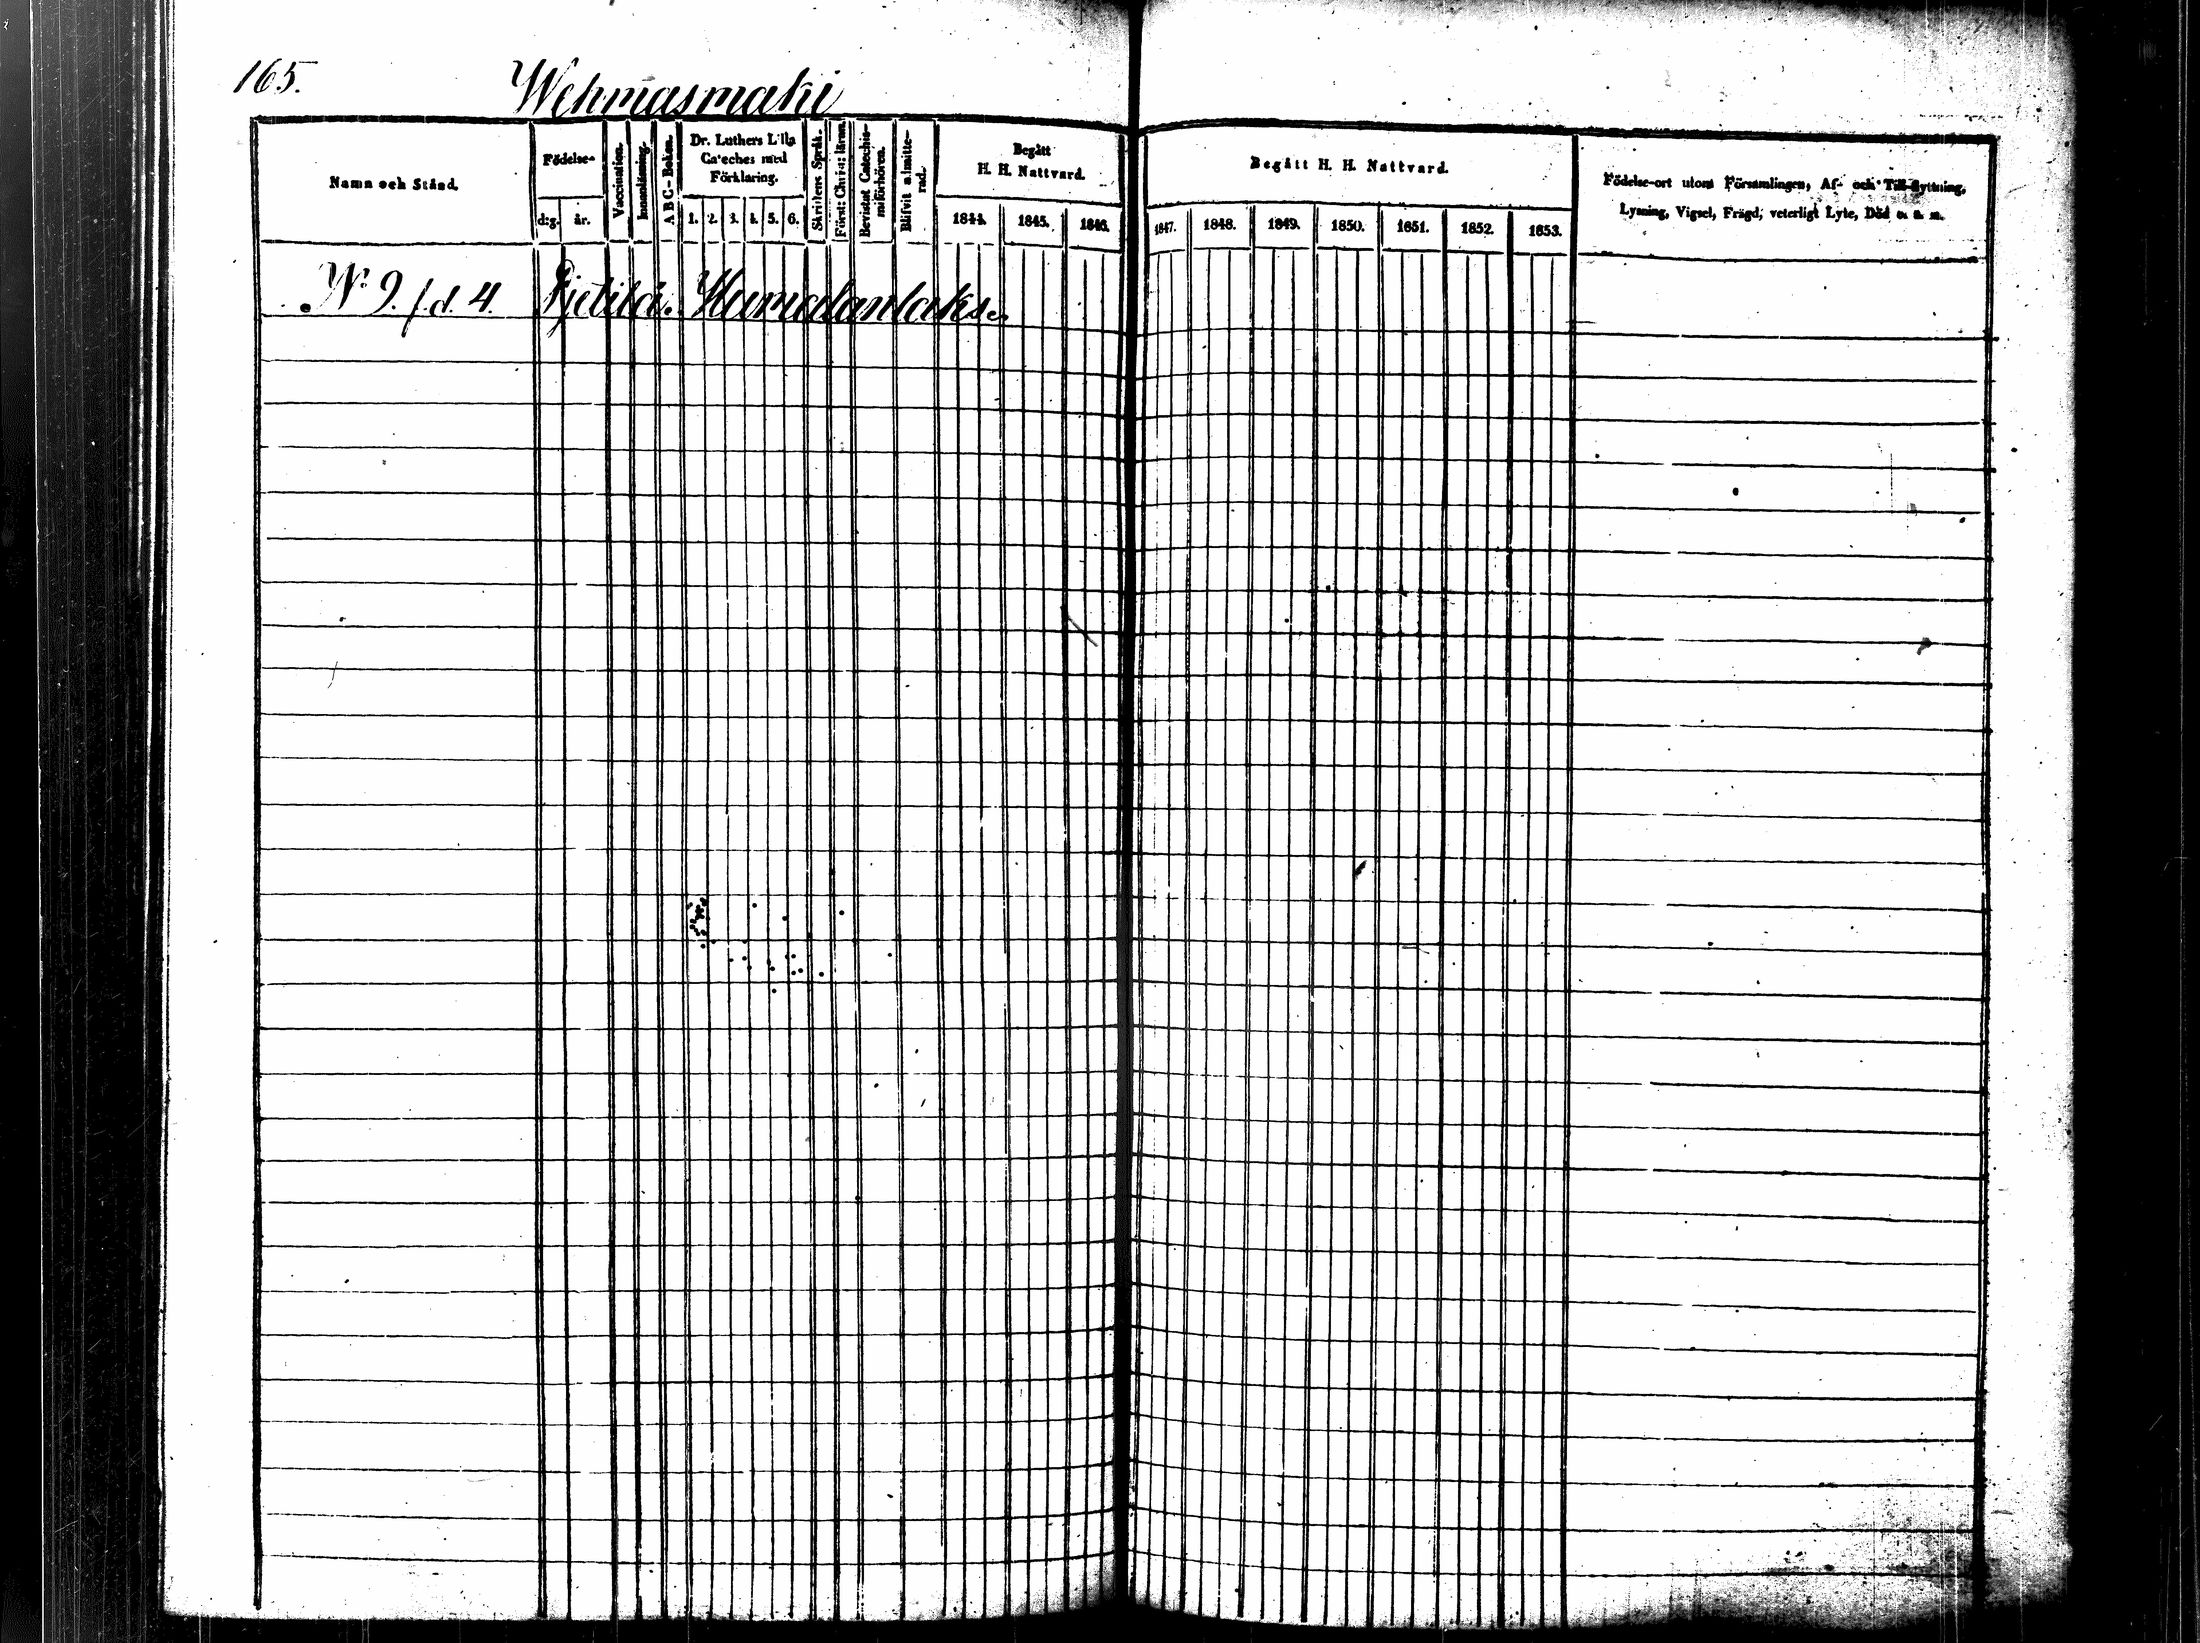 165.
Wehmasmaki
Namn och Stånd.
Födelse-
d:g.
år.
Vaccination.
Innanläsning.
A B C-Boken.
Dr. Luthers Lilla
Cateches med
Förklaring.
1. 2. 3. 4. 5. 6.
Skriftens Språk.
Först: Christ: lärom
Bevistat Catechis-
miförhören.
Blifvit admitte-
rad.
Begått
H. H. Nattvard.
1844. 1845. 1846.
Begått H. H. Nattvard.
1847. 1848. 1849. 1850. 1851. 1852. 1853.
Födelse-ort utom Församlingen, Af- och Till-flyttning,
Lysning, Vigsel, Frägd, veterligt Lyte, Död o. s. m.
No 9. f.d. 4. Pjetilä. Humalanlaks.